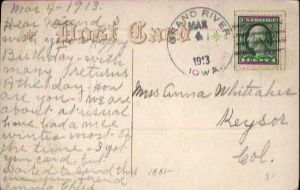 Mar 4 - 1913.
Post Card
GRAND RIVER,
MAR
4
1913
IOWA.
Dear Friend I
wish you a Happy
Birthday - with
many returns
of the day - How
are you - we are
about as usual
have had a nice
winter most of
the time - I got
your card but
waited to send this
on your
Miss Anna Whittaker
Keysor
Col.
1 CENT 1